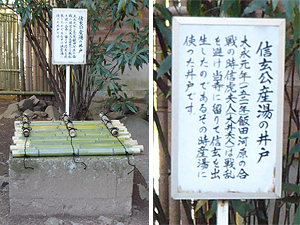 信玄公産湯の井戸
大永元年(一五二一年)飯田河原の合
戦の時信虎夫人(大井夫人)は戦乱
を避け当寺に留りて信玄を出
生したのであるその時産湯に
使った井戸です
信玄公産湯の井戸